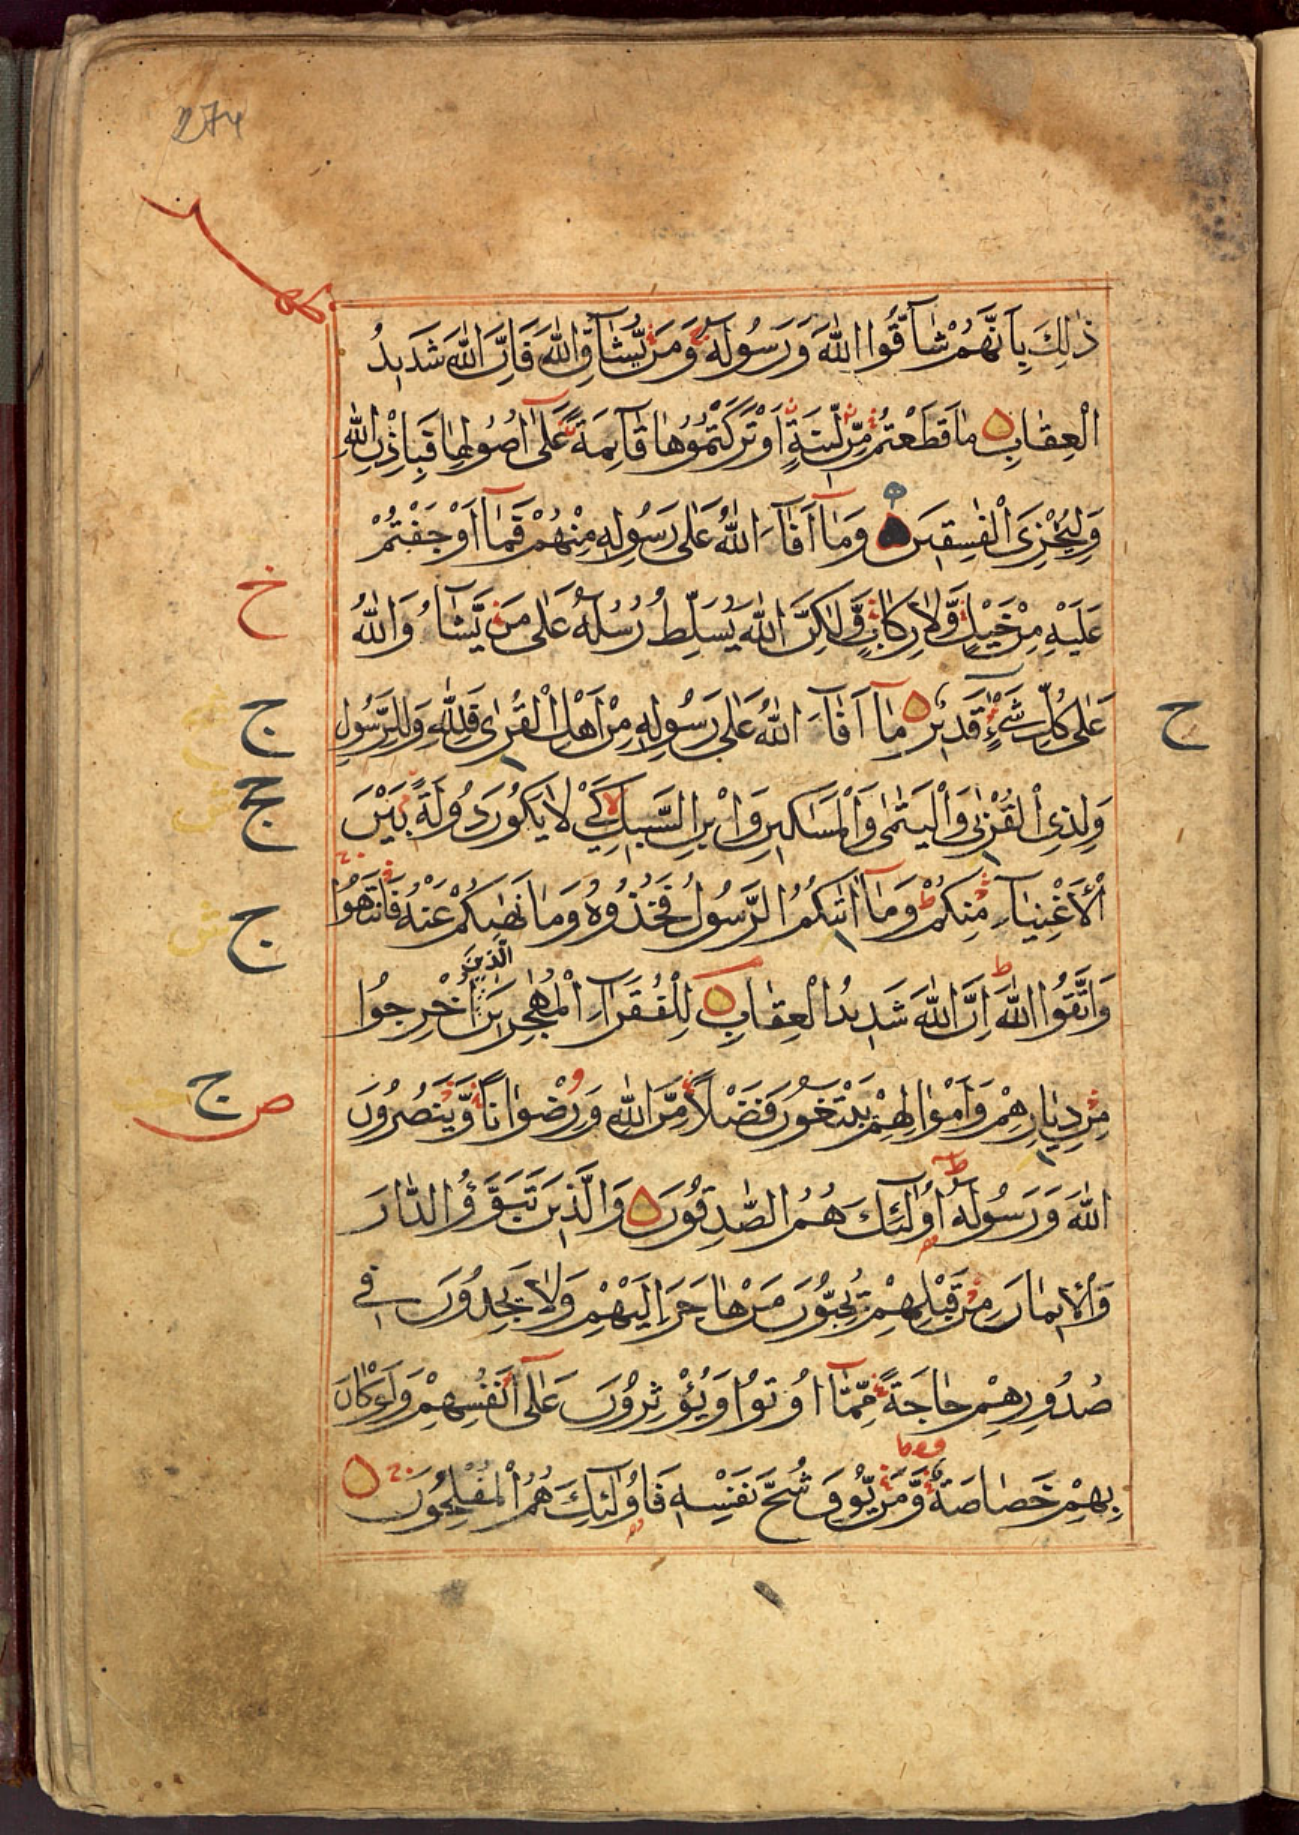 274
ذٰلِكَ بِاَنَّهُمْ شَآقُّوا اللّٰهَ وَرَسُولَهُ وَمَنْ يُّشَآقِّ اللّٰهَ فَاِنَّ اللّٰهَ شَدِيدُ
الْعِقَابِ مَا قَطَعْتُمْ مِّنْ لِّينَةٍ اَوْ تَرَكْتُمُوْهَا قَآئِمَةً عَلٰٓى اُصُولِهَا فَبِاِذْنِ اللّٰهِ
وَلِيُخْزِىَ الْفٰسِقِينَ وَمَآ اَفَآءَ اللّٰهُ عَلٰى رَسُولِهٖ مِنْهُمْ فَمَآ اَوْجَفْتُمْ
عَلَيْهِ مِنْ خَيْلٍ وَّلَا رِكَابٍ وَّلٰكِنَّ اللّٰهَ يُسَلِّطُ رُسُلَهُ عَلٰى مَنْ يَّشَآءُ وَاللّٰهُ
خ
عَلٰى كُلِّ شَىْءٍ قَدِيرٌ مَآ اَفَآءَ اللّٰهُ عَلٰى رَسُولِهٖ مِنْ اَهْلِ الْقُرٰى فَلِلّٰهِ وَلِلرَّسُولِ
ج
ح
وَلِذِى الْقُرْبٰى وَالْيَتٰمٰى وَالْمَسَاكِينِ وَابْنِ السَّبِيلِ كَيْ لَا يَكُونَ دُولَةً بَيْنَ
الْاَغْنِيَآءِ مِنْكُمْ وَمَآ اٰتٰىكُمُ الرَّسُولُ فَخُذُوهُ وَمَا نَهٰىكُمْ عَنْهُ فَانْتَهُوْا
ج
وَاتَّقُوا اللّٰهَ اِنَّ اللّٰهَ شَدِيدُ الْعِقَابِ لِلْفُقَرَآءِ الْمُهٰجِرِينَ الَّذِينَ اُخْرِجُوا
مِنْ دِيَارِهِمْ وَاَمْوَالِهِمْ يَبْتَغُونَ فَضْلًا مِّنَ اللّٰهِ وَرِضْوَانًا وَّيَنْصُرُونَ
ص ج
اللّٰهَ وَرَسُولَهُ اُولٰٓئِكَ هُمُ الصّٰدِقُونَ وَالَّذِينَ تَبَوَّؤُ الدَّارَ
وَالْاِيمَانَ مِنْ قَبْلِهِمْ يُحِبُّونَ مَنْ هَاجَرَ اِلَيْهِمْ وَلَا يَجِدُونَ فِى
صُدُورِهِمْ حَاجَةً مِّمَّآ اُوتُوا وَيُؤْثِرُونَ عَلٰٓى اَنْفُسِهِمْ وَلَوْ كَانَ
بِهِمْ خَصَاصَةٌ وَّمَنْ يُّوقَ شُحَّ نَفْسِهٖ فَاُولٰٓئِكَ هُمُ الْمُفْلِحُونَ